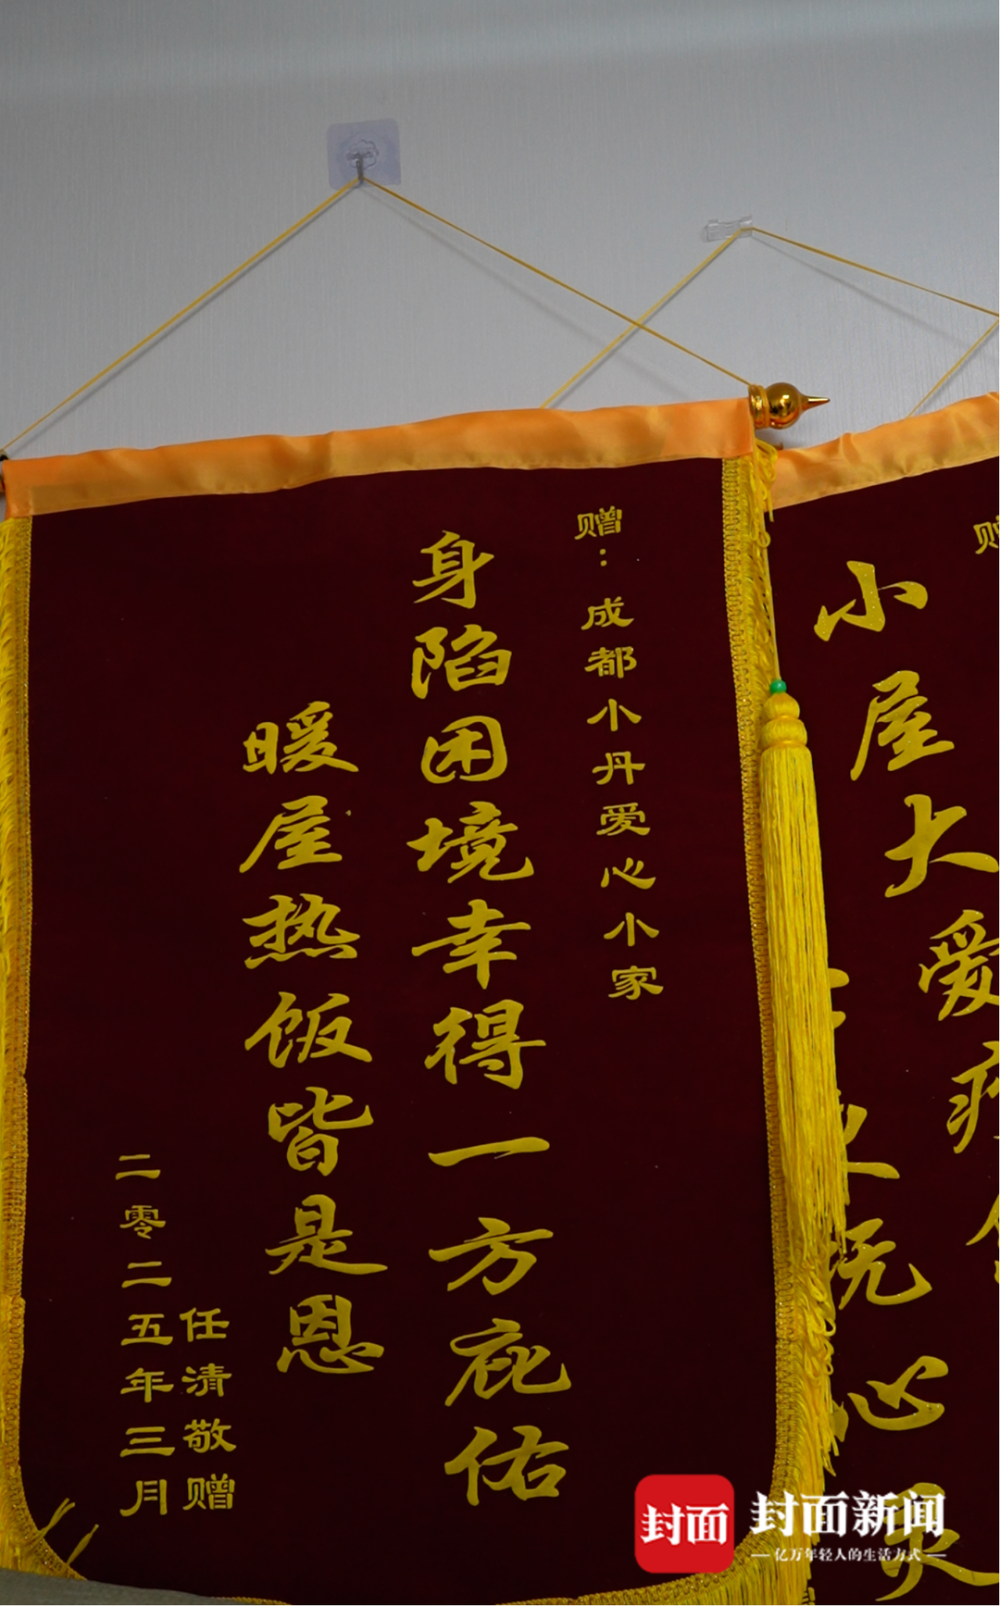 赠：成都小丹爱心小家
身陷困境幸得一方庇佑
暖屋热饭皆是恩
任清敬赠
二零二五年三月
赠
小屋大爱疗
抚心灵
封面
封面新闻
亿万年轻人的生活方式